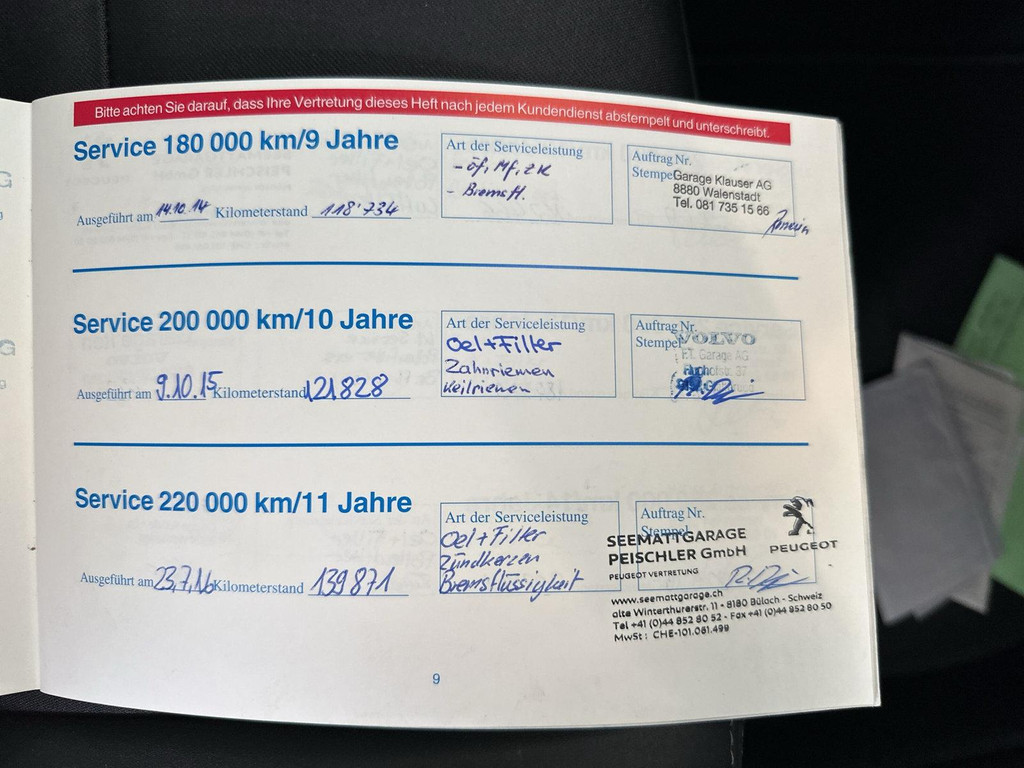 Bitte achten Sie darauf, dass Ihre Vertretung dieses Heft nach jedem Kundendienst abstempelt und unterschreibt.
Service 180 000 km/9 Jahre
Ausgeführt am 14.10.14 Kilometerstand 118'734
Art der Serviceleistung
- öf, Mf, ZK
- Bremsfl.
Auftrag Nr.
Stempel
Garage Klauser AG
8880 Walenstadt
Tel. 081 735 15 66
Service 200 000 km/10 Jahre
Ausgeführt am 9.10.15 Kilometerstand 121828
Art der Serviceleistung
Oel+Filter
Zahnriemen
Keilriemen
Auftrag Nr.
Stempel
VOLVO
Garage AG
37
Service 220 000 km/11 Jahre
Ausgeführt am 23.7.16 Kilometerstand 139871
Art der Serviceleistung
Oel+Filter
Zündkerzen
Bremsflüssigkeit
Auftrag Nr.
Stempel
SEEMATTGARAGE
PEISCHLER GmbH
PEUGEOT VERTRETUNG
PEUGEOT
www.seemattgarage.ch
alte Winterthurerstr. 11 - 8180 Bülach - Schweiz
Tel +41 (0)44 852 80 52 - Fax +41 (0)44 852 80 50
MwSt : CHE-101.061.499
9